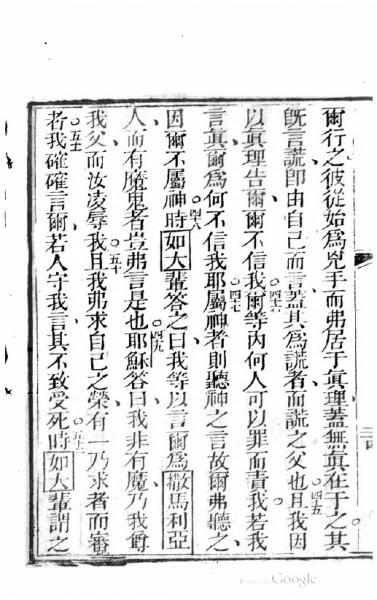 爾行之彼從始爲兇手而弗居于眞理蓋無眞在于之其
旣言謊卽由自己而言蓋其爲謊者而謊之父也且我因
四五
以眞理告爾爾不信我爾等內何人可以罪而責我若我
四六
言眞爾爲何不信我耶屬神者則聽神之言故爾弗聽之
四七
因爾不屬神時如大輩答之曰我等以言爾爲撒馬利亞
四八
人而有魔鬼者豈弗言是也耶穌答曰我非有魔乃我尊
四九
我父而汝凌辱我且我弗求自己之榮有一乃求者而審
五十
者我確確言爾若人守我言其不致受死時如大輩謂之
五十
Google